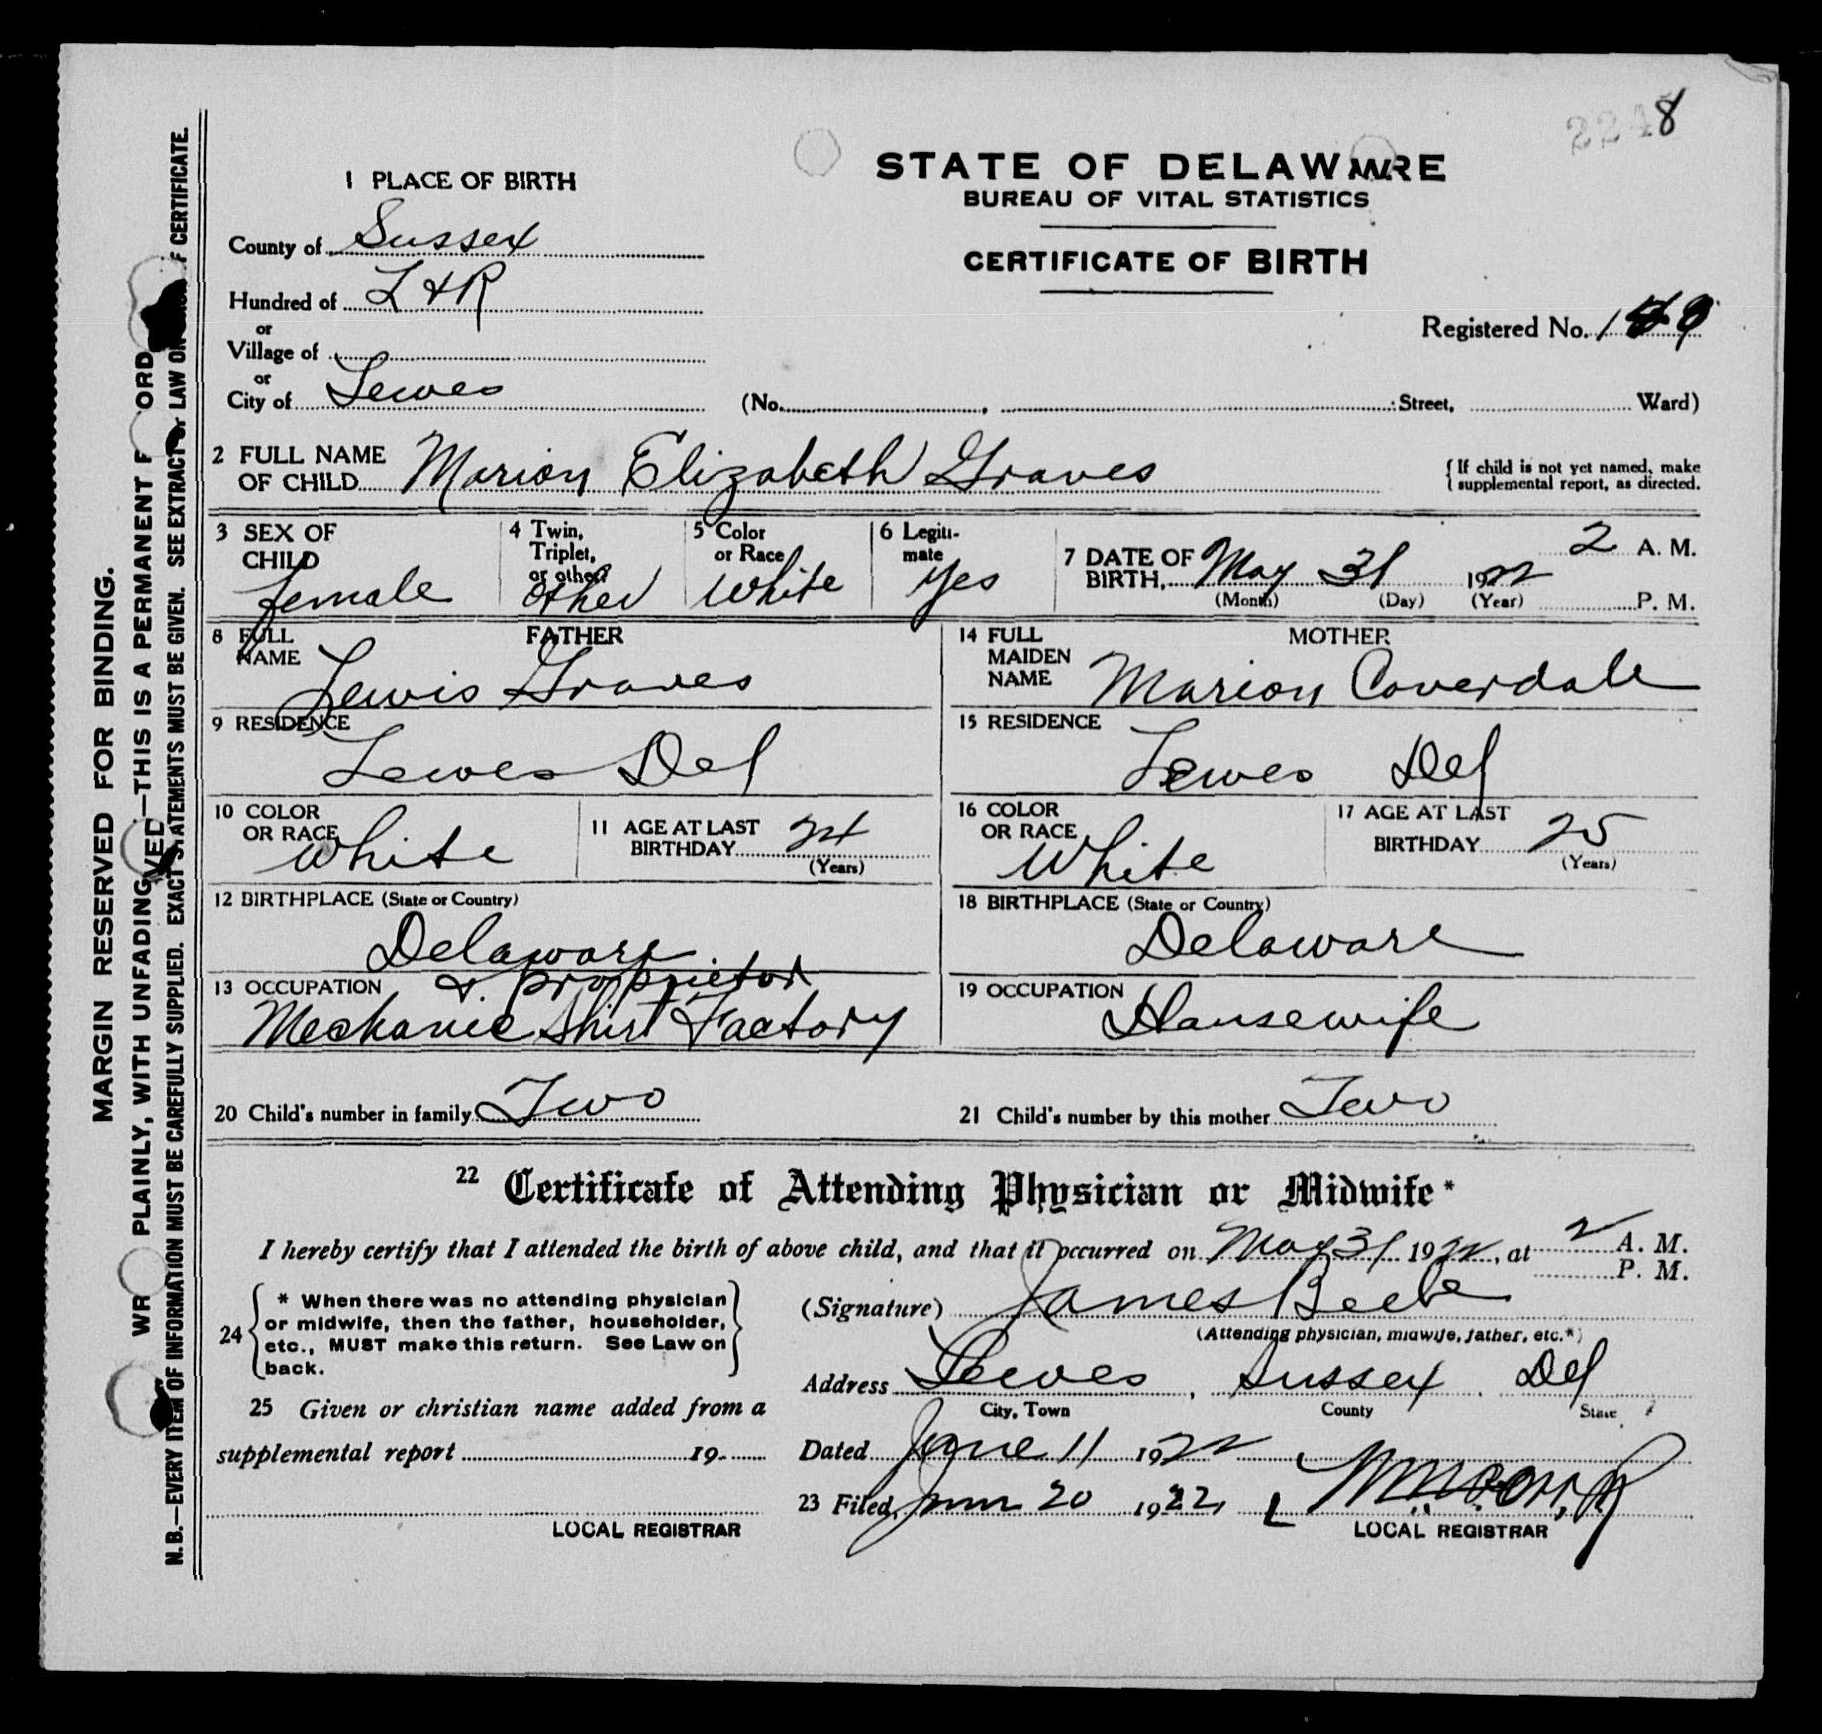 2248
1 PLACE OF BIRTH
STATE OF DELAWARE
BUREAU OF VITAL STATISTICS
CERTIFICATE OF BIRTH
County of Sussex
Hundred of L & R
or
Village of
or
City of Lewes (No. , Street, Ward)
Registered No.
2 FULL NAME OF CHILD Marion Elizabeth Graves
{If child is not yet named, make supplemental report, as directed.
3 SEX OF CHILD female
4 Twin, Triplet, or other other
5 Color or Race White
6 Legiti-mate Yes
7 DATE OF BIRTH, May 31 1922 2 A. M.
(Month) (Day) (Year) P. M.
FATHER
8 FULL NAME Lewis Graves
9 RESIDENCE Lewes Del
10 COLOR OR RACE White
11 AGE AT LAST BIRTHDAY 24 (Years)
12 BIRTHPLACE (State or Country)
Delaware
13 OCCUPATION & proprietor
Mechanic Shirt Factory
MOTHER
14 FULL MAIDEN NAME Marion Coverdale
15 RESIDENCE Lewes Del
16 COLOR OR RACE White
17 AGE AT LAST BIRTHDAY 25 (Years)
18 BIRTHPLACE (State or Country)
Delaware
19 OCCUPATION Housewife
20 Child's number in family Two
21 Child's number by this mother Two
22 Certificate of Attending Physician or Midwife*
I hereby certify that I attended the birth of above child, and that it occurred on May 31 1922, at 2 A. M.
P. M.
24 {* When there was no attending physician
or midwife, then the father, householder,
etc., MUST make this return. See Law on
back.}
(Signature) James Beebe
(Attending physician, midwife, father, etc.*)
Address Lewes, Sussex. Del
City, Town County State
25 Given or christian name added from a
supplemental report 19
LOCAL REGISTRAR
Dated June 11 1922
23 Filed, June 20 1922,
LOCAL REGISTRAR
MARGIN RESERVED FOR BINDING.
WR PLAINLY, WITH UNFADING —THIS IS A PERMANENT ORD
N. B.—EVERY ITEM OF INFORMATION MUST BE CAREFULLY SUPPLIED. EXACT STATEMENTS MUST BE GIVEN. SEE EXTRACT LAW ON F CERTIFICATE.